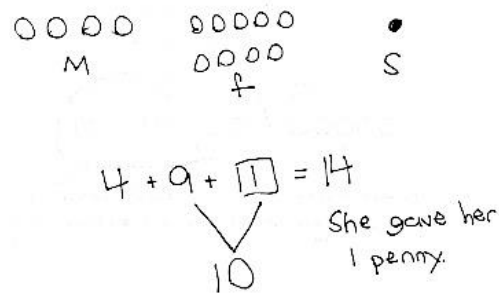 M f S
4 + 9 + 1 = 14
10
She gave her
1 penny.